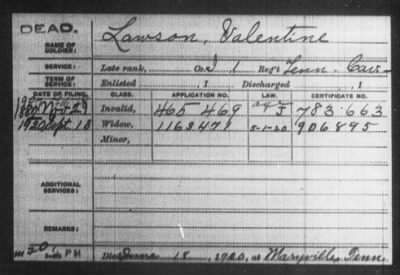 DEAD.
NAME OF SOLDIER: Lawson, Valentine
SERVICE: Late rank, Co. I 1 Reg't Tenn. Cav.
TERM OF SERVICE: Enlisted , 1 Discharged , 1
DATE OF FILING. CLASS. APPLICATION NO. LAW. CERTIFICATE NO.
29 Invalid, 465 469 J 783.663
1920 Sept. 18 Widow, 1163471 5-1-20 906895
Minor,
ADDITIONAL SERVICES:
REMARKS:
Died 18, 1920, at Maryville, Tenn.